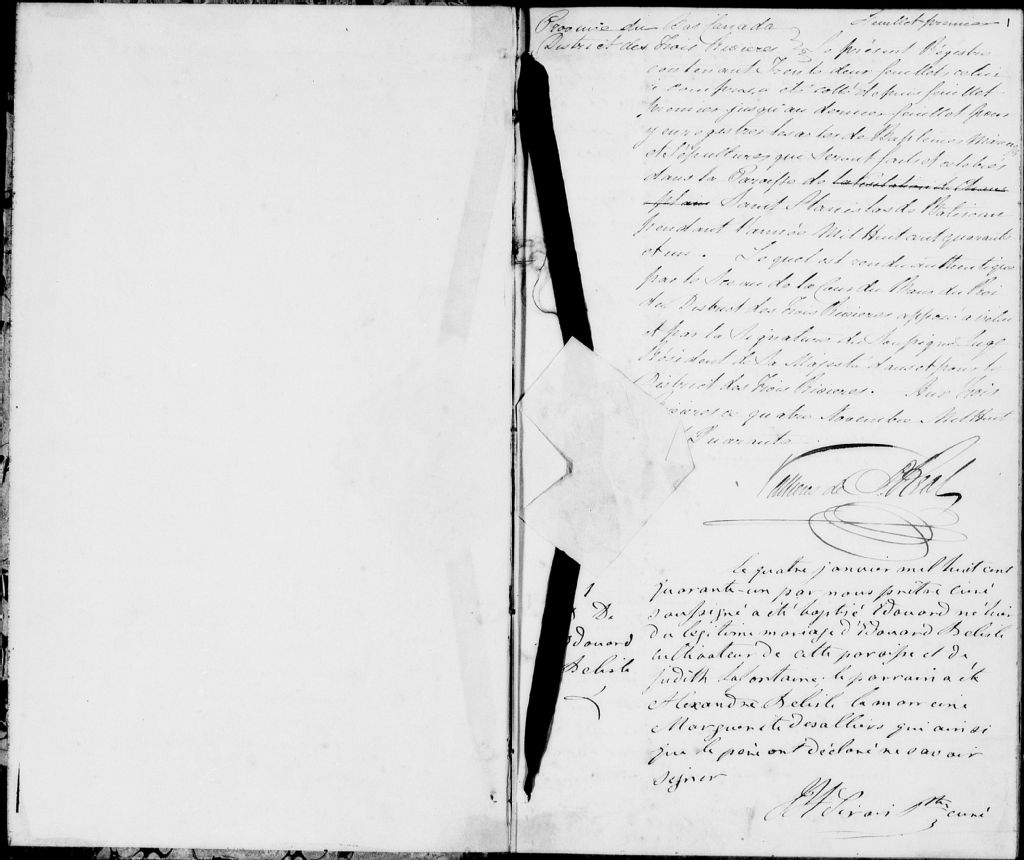 Feuillet premier 1
Province du Bas Canada
District des Trois Rivieres } Le présent Régistre
contenant Trente deux feuillets celui
ci compris, a été cotté depuis feuillet
premier jusqu'au dernier feuillet pour
y enregistrer les actes de Baptemes Mariages
et Sépultures qui seront faits et célébrés
dans la Paroisse de la Visitation de Cham
plain Saint Stanislas de Batiscan
pendant l'année Mil Huit cent quarante
et un. Le quel est rendu authentique
par le Sceau de la Cour du Banc du Roi
du District des Trois Rivieres apposé à celui
et par la Signature du Soussigné Juge
Résident de Sa Majesté dans et pour le
District des Trois Rivieres. Aux Trois
Rivieres ce quatre Novembre Mil Huit
Quarante.
Vallieres de St Real
Le quatre janvier mil huit cent
quarante-un par nous prêtre curé
soussigné a été baptisé Edouard né hier
du légitime mariage d'Edouard Belisle
cultivateur de cette paroisse et de
Judith Lafontaine. le parrain a été
Alexandre Belisle la marreine
Marguerite Desalliers qui ainsi
que le père ont déclaré ne savoir
signer
1
B De
Edouard
Belisle
Sirois Ptre curé